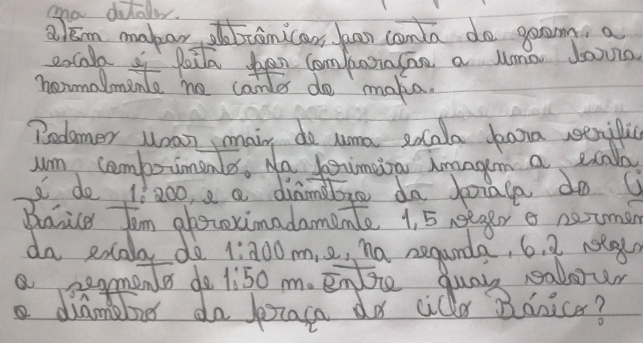 ma detalar.
além mapas eletrônicos, por conta do zoom, a
escala é feita por comparação a uma barra
normalmente no canto do mapa.
Podemos usar mais de uma escala para verific
um comprimento. Na primeira imagem a escala
é de 1:200, e o diâmetro da praça do C
Básico tem aproximadamente 1,5 vezes o segmen
da escala de 1:200 m, e, na segunda, 6,2 vezes
o segmento de 1:50 m. Entre quais valores
o diâmetro da praça do ciclo Básico?